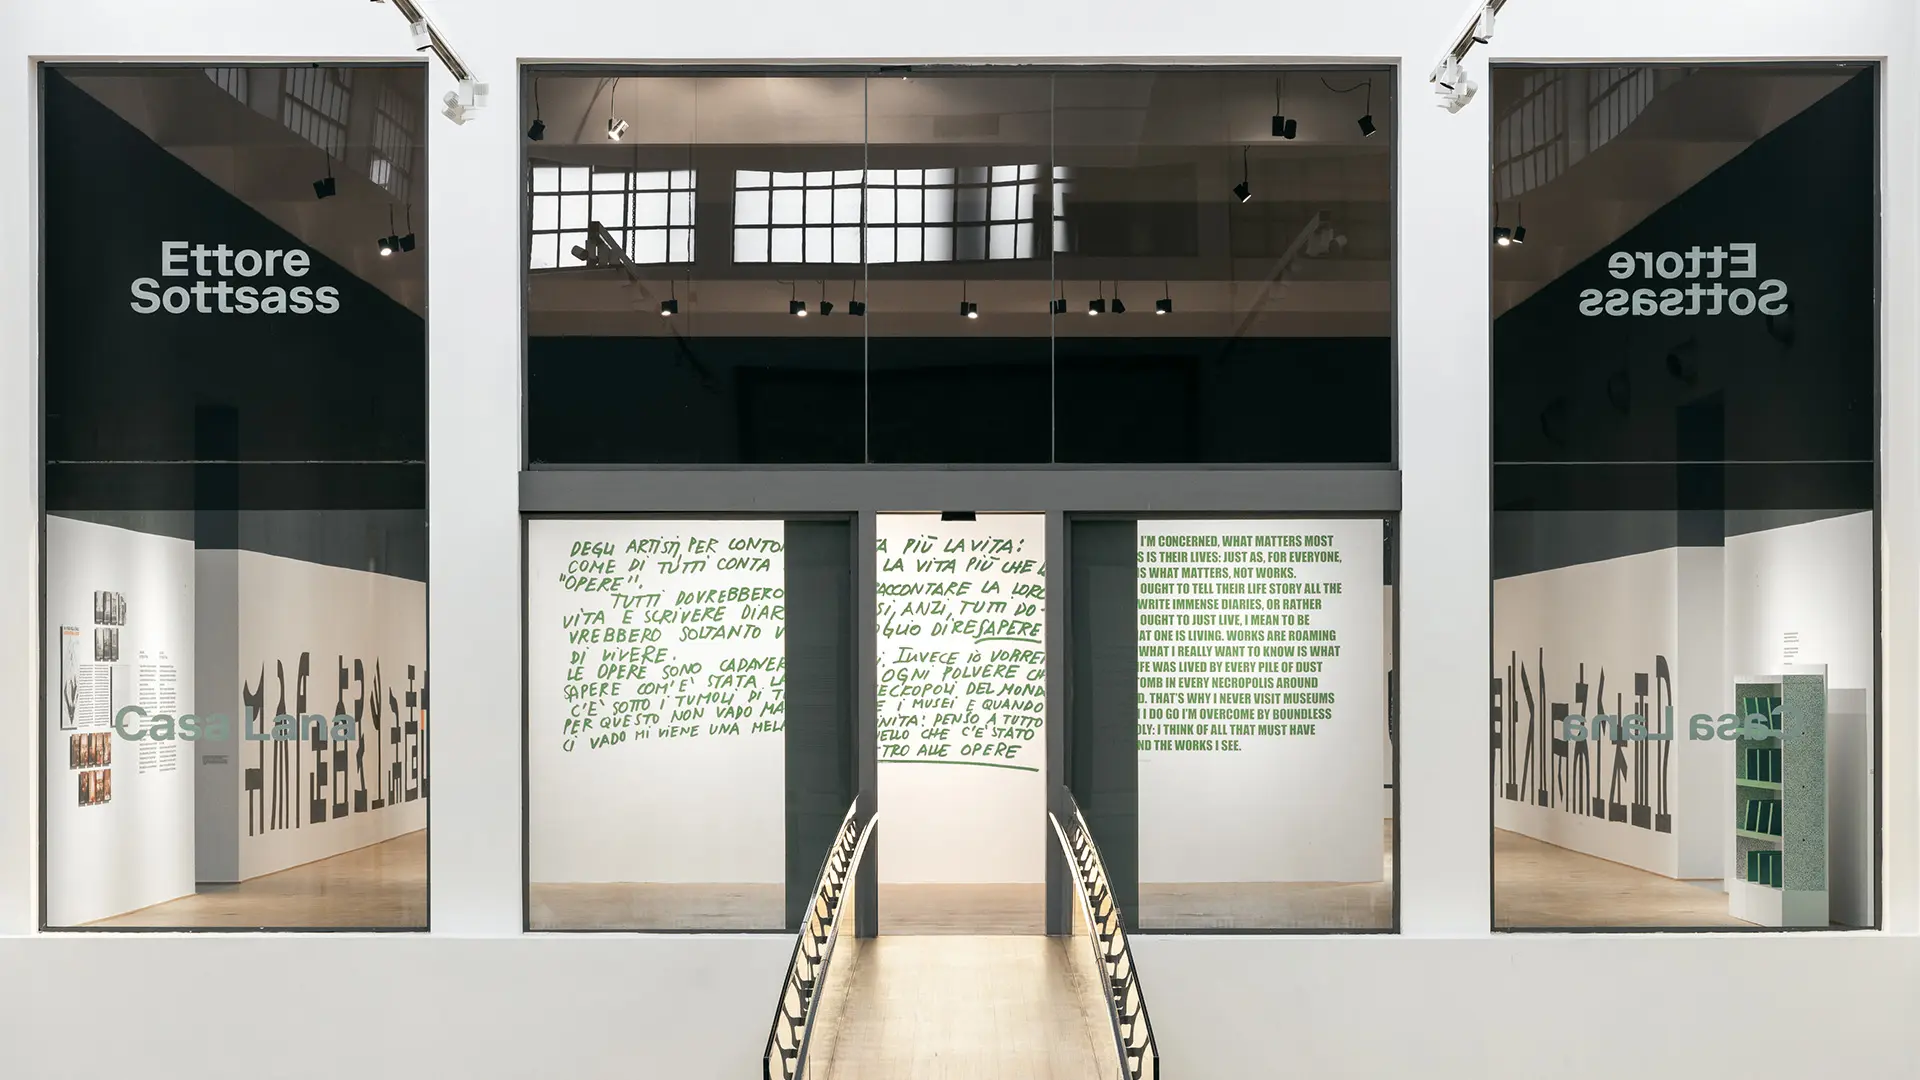 Ettore
Sottsass
Casa Lana
DEGLI ARTISTI, PER CONTO
COME DI TUTTI CONTA
"OPERE".
TUTTI DOVREBBERO
VITA E SCRIVERE DIAR
VREBBERO SOLTANTO V
DI VIVERE.
LE OPERE SONO CADAVER
SAPERE COM'E' STATA LA
C'E' SOTTO I TUMOLI DI T
PER QUESTO NON VADO MA
CI VADO MI VIENE UNA MEL
A PIÙ LA VITA:
LA VITA PIÙ CHE L
RACCONTARE LA LORO
SI, ANZI, TUTTI DO-
OGLIO DIRE SAPERE
. INVECE IO VORREI
OGNI POLVERE CH
ECROPOLI DEL MONDO
E I MUSEI E QUANDO
INITA: PENSO A TUTTO
ELLO CHE C'E' STATO
TRO ALLE OPERE
I'M CONCERNED, WHAT MATTERS MOST
S IS THEIR LIVES: JUST AS, FOR EVERYONE,
IS WHAT MATTERS, NOT WORKS.
OUGHT TO TELL THEIR LIFE STORY ALL THE
WRITE IMMENSE DIARIES, OR RATHER
OUGHT TO JUST LIVE, I MEAN TO BE
AT ONE IS LIVING. WORKS ARE ROAMING
WHAT I REALLY WANT TO KNOW IS WHAT
IFE WAS LIVED BY EVERY PILE OF DUST
TOMB IN EVERY NECROPOLIS AROUND
D. THAT'S WHY I NEVER VISIT MUSEUMS
I DO GO I'M OVERCOME BY BOUNDLESS
OLY: I THINK OF ALL THAT MUST HAVE
ND THE WORKS I SEE.
Ettore
Sottsass
Casa Lana